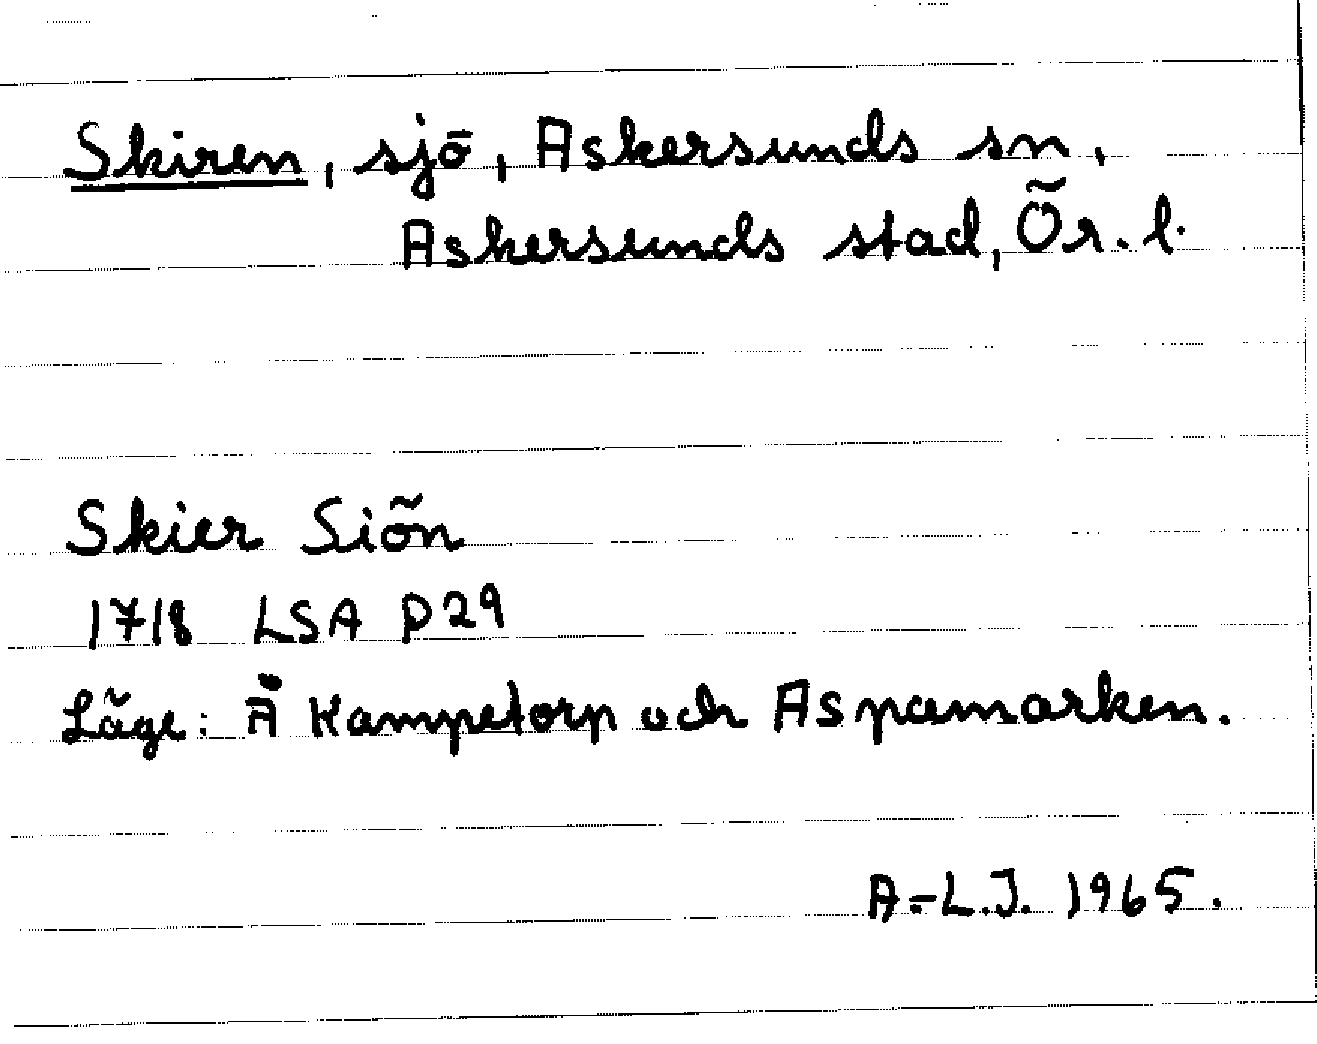 Skiren, sjö, Askersunds sn,
Askersunds stad, Ör. l.
Skier Siön
1718 LSA P29
Läge: Å Kampetorp och Aspamarken.
A.-L.J. 1965.